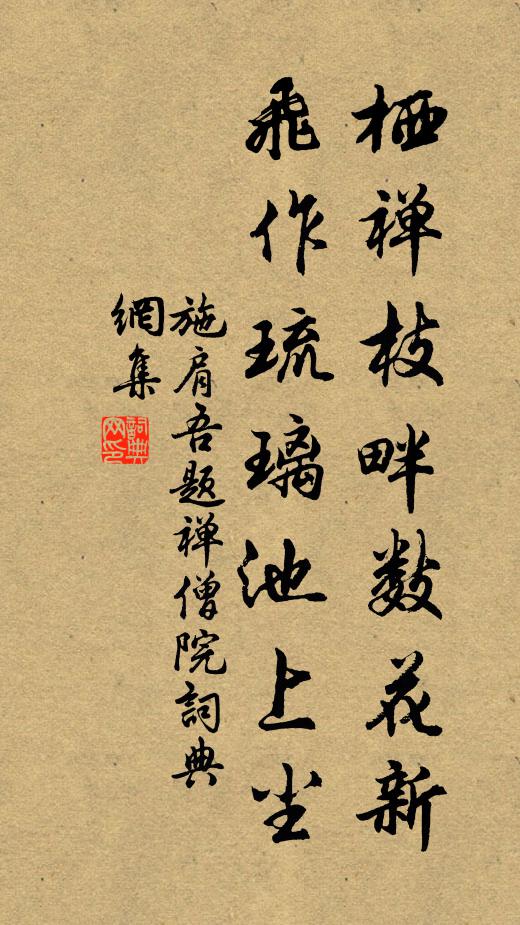 栖禅枝畔数花新
飛作琉璃池上尘
施肩吾题禅僧院詞典
網集
詞典
网印